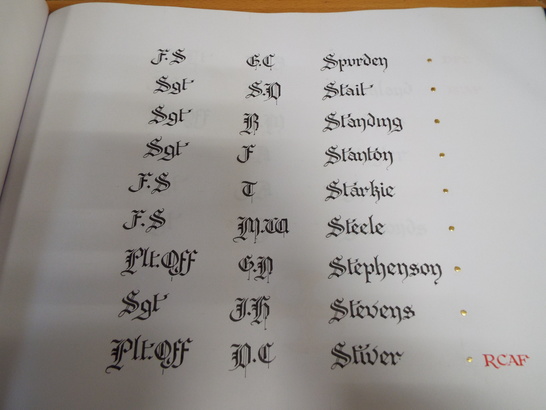 F.S G.C Spurden
Sgt S.D Stait
Sgt B Standing
Sgt F Stanton
F.S T Starkie
F.S M.W Steele
Plt:Off G.N Stephenson
Sgt J.H Stevens
Plt:Off D.C Stiver RCAF